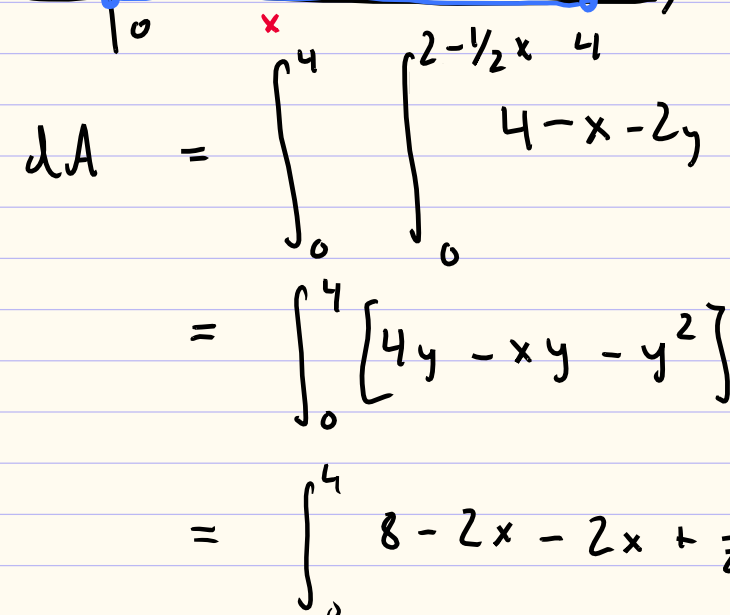 0 x
dA = ∫₀⁴ ∫₀^(2-1/2x) 4 4-x-2y
= ∫₀⁴ [4y - xy - y²]
= ∫₀⁴ 8 - 2x - 2x +